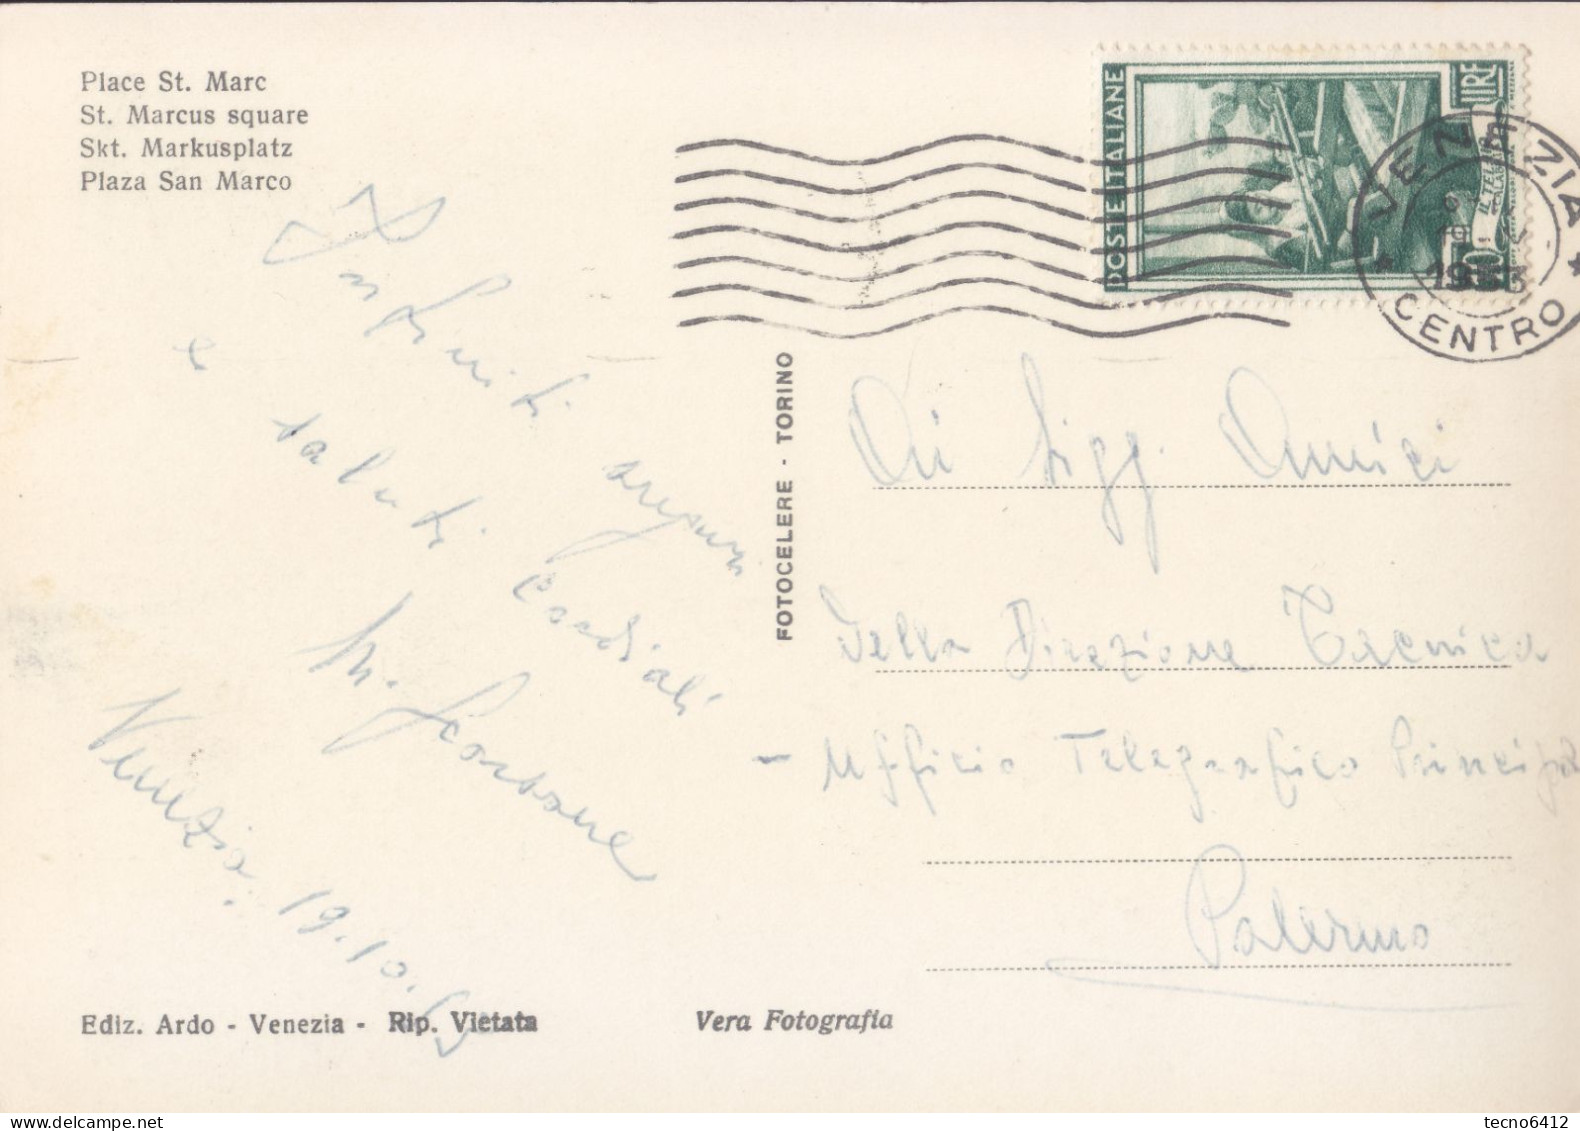 Place St. Marc
St. Marcus square
Skt. Markusplatz
Plaza San Marco
POSTE ITALIANE
LIRE
IL TELAIO
CALABRIA
VENEZIA
CENTRO
1953
Infiniti auguri
e saluti cordiali
Venezia, 19.10.53
FOTOCELERE - TORINO
Ai Sigg. Amici
della Direzione Tecnica
- Ufficio Telegrafico Principale
Palermo
Ediz. Ardo - Venezia - Rip. Vietata
Vera Fotografia
tecno6412